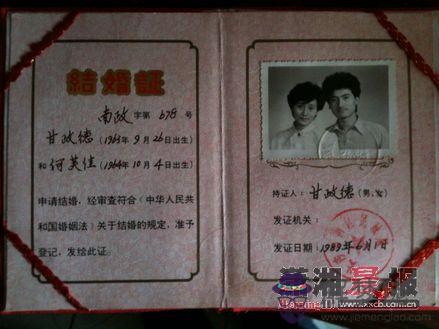 結婚証
南政字第 678 号
甘政德(1963年9月26日出生)
和何芙佳(1964年10月4日出生)
申请结婚，经审查符合《中华人民共
和国婚姻法》关于结婚的规定，准予
登记，发给此证。
持证人：甘政德(男、女)
发证机关：
发证日期：1989年6月1日
潇湘晨报
www.xxcb.cn
www.jiemenglao.com